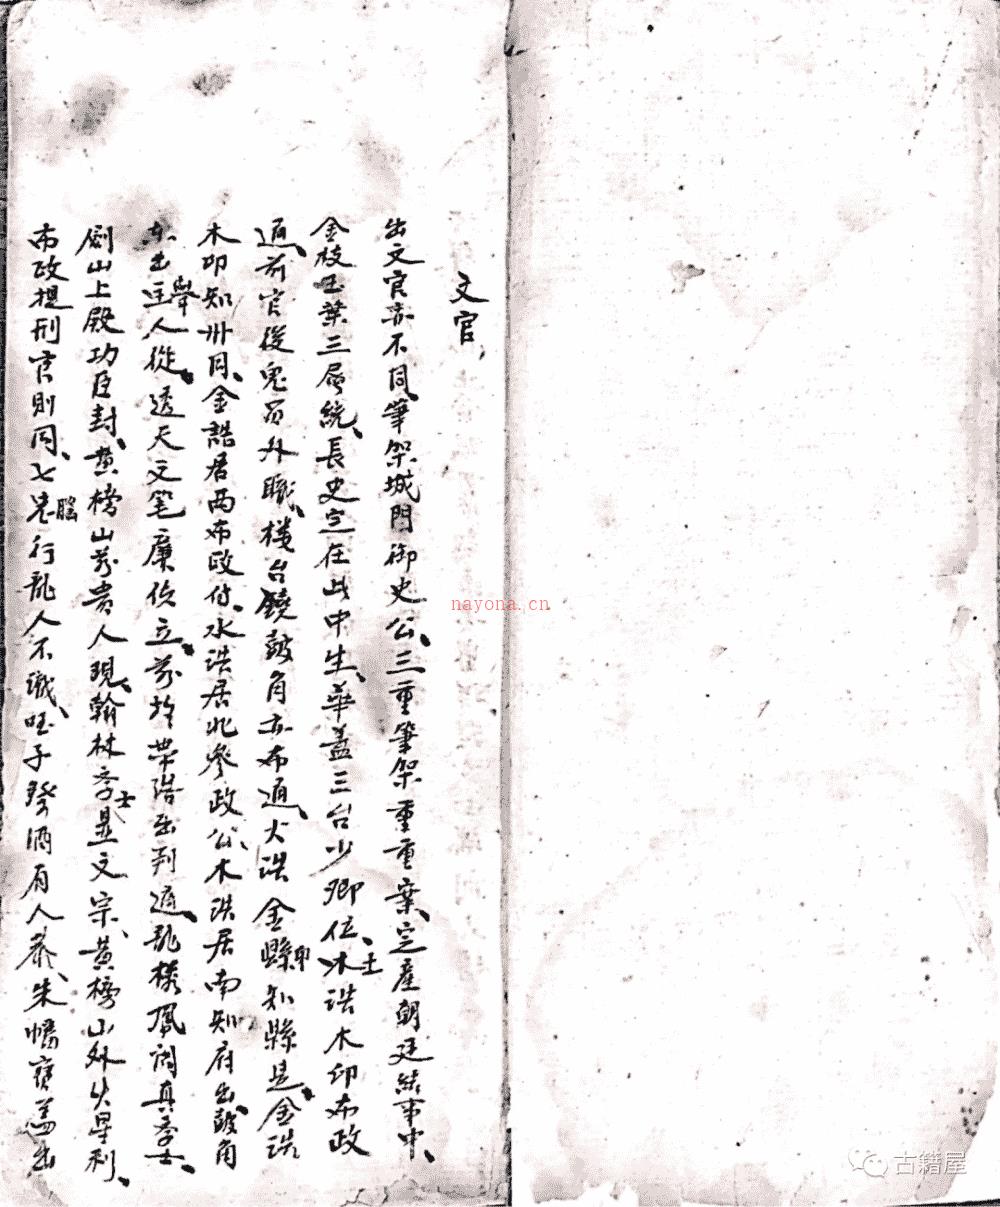 文官
出文官亦不同、筆架城門御史公、三重筆架重重案、定產朝廷給事中、
金枝玉葉三層統、長史定在此中生、華蓋三台少卿位、水土誥木印布政
通、前官後鬼員外職、樓台鐃鼓角亦布通、火誥金縣印知縣是、金誥
木印知州同、金誥居西布政付、水誥居北參政公、木誥居南知府出、鼓角
東出主舉人從、透天文笔廉侦立、帶誥出判通、龍樓鳳閣真學士、
劍山上殿功臣封、黄榜山前貴人現、翰林學士是文宗、黄榜山外火星利、
布政提刑官則同、七星腦行龍人不識、子癸酒有人葬、朱幡寶蓋出
nayona.cn
古籍屋